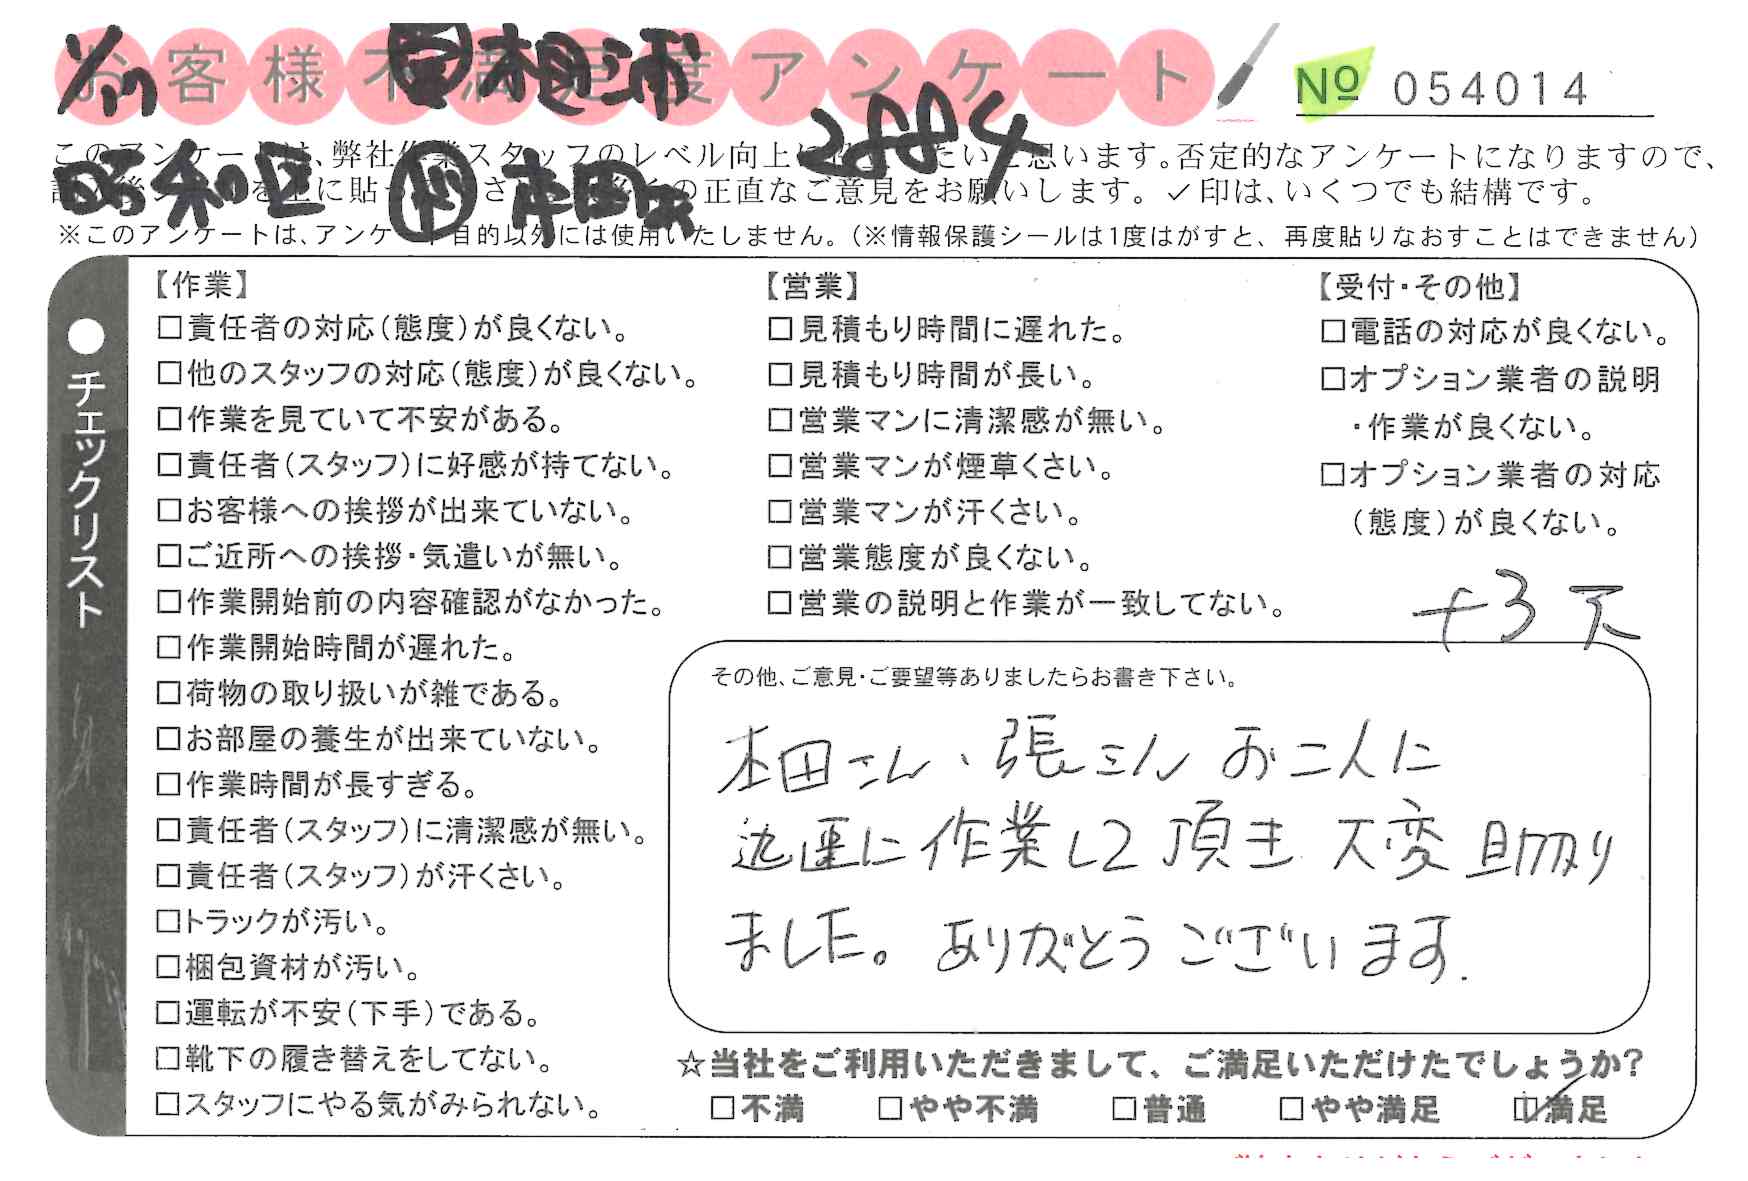 お客様不満足度アンケート
No 054014
2884
昭和区
このアンケートは、弊社作業スタッフのレベル向上に たいと思います。否定的なアンケートになりますので、
に貼っ の正直なご意見をお願いします。✓印は、いくつでも結構です。
※このアンケートは、アンケート目的以外には使用いたしません。（※情報保護シールは1度はがすと、再度貼りなおすことはできません）
●チェックリスト
【作業】
□責任者の対応（態度）が良くない。
□他のスタッフの対応（態度）が良くない。
□作業を見ていて不安がある。
□責任者（スタッフ）に好感が持てない。
□お客様への挨拶が出来ていない。
□ご近所への挨拶・気遣いが無い。
□作業開始前の内容確認がなかった。
□作業開始時間が遅れた。
□荷物の取り扱いが雑である。
□お部屋の養生が出来ていない。
□作業時間が長すぎる。
□責任者（スタッフ）に清潔感が無い。
□責任者（スタッフ）が汗くさい。
□トラックが汚い。
□梱包資材が汚い。
□運転が不安（下手）である。
□靴下の履き替えをしてない。
□スタッフにやる気がみられない。
【営業】
□見積もり時間に遅れた。
□見積もり時間が長い。
□営業マンに清潔感が無い。
□営業マンが煙草くさい。
□営業マンが汗くさい。
□営業態度が良くない。
□営業の説明と作業が一致してない。
【受付・その他】
□電話の対応が良くない。
□オプション業者の説明
・作業が良くない。
□オプション業者の対応
（態度）が良くない。
その他、ご意見・ご要望等ありましたらお書き下さい。
本田さん、張さん お二人に
迅速に作業して頂き 大変 助かり
ました。ありがとうございます.
☆当社をご利用いただきまして、ご満足いただけたでしょうか？
□不満 □やや不満 □普通 □やや満足 ☑満足